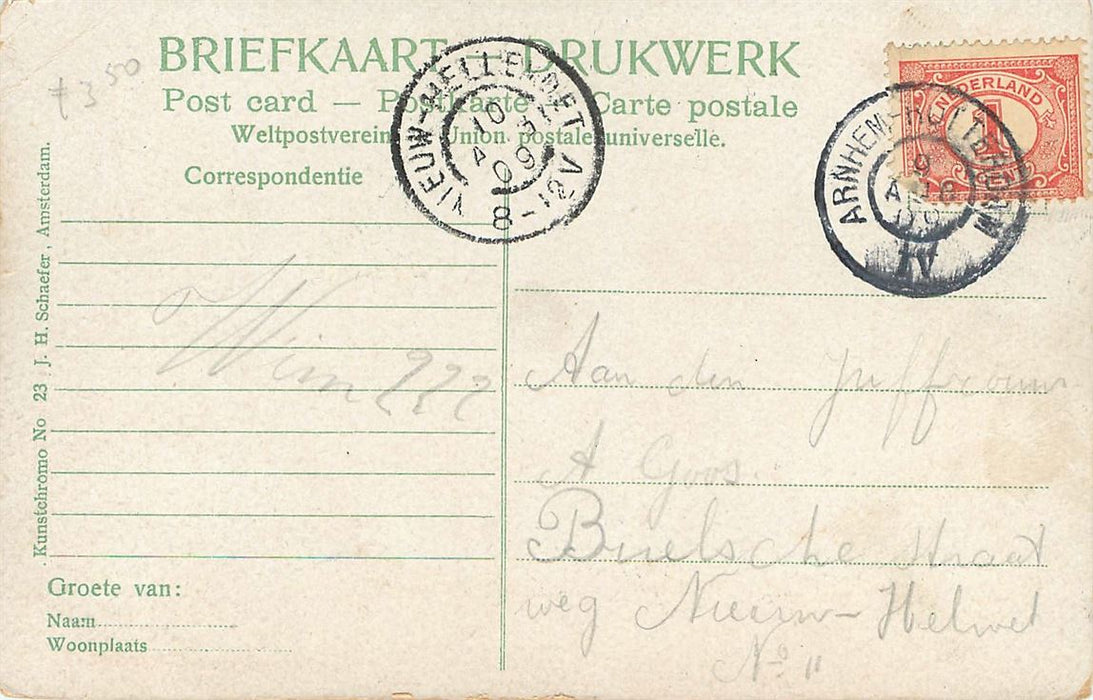 BRIEFKAART – DRUKWERK
Post card — Postkarte — Carte postale
Weltpostverein. Union postale universelle.
Correspondentie
ƒ 3 50
NIEUW-HELLEVOET
10
A
09
8-12V
NEDERLAND
1
ARNHEM-ROTTERDAM
9
09
IV
Wim
Aan den Juffrouw
A Goos.
straat
weg Nieuw-Helvoet
No 11
Groete van:
Naam
Woonplaats
Kunstchromo No 23 J. H. Schaefer, Amsterdam.